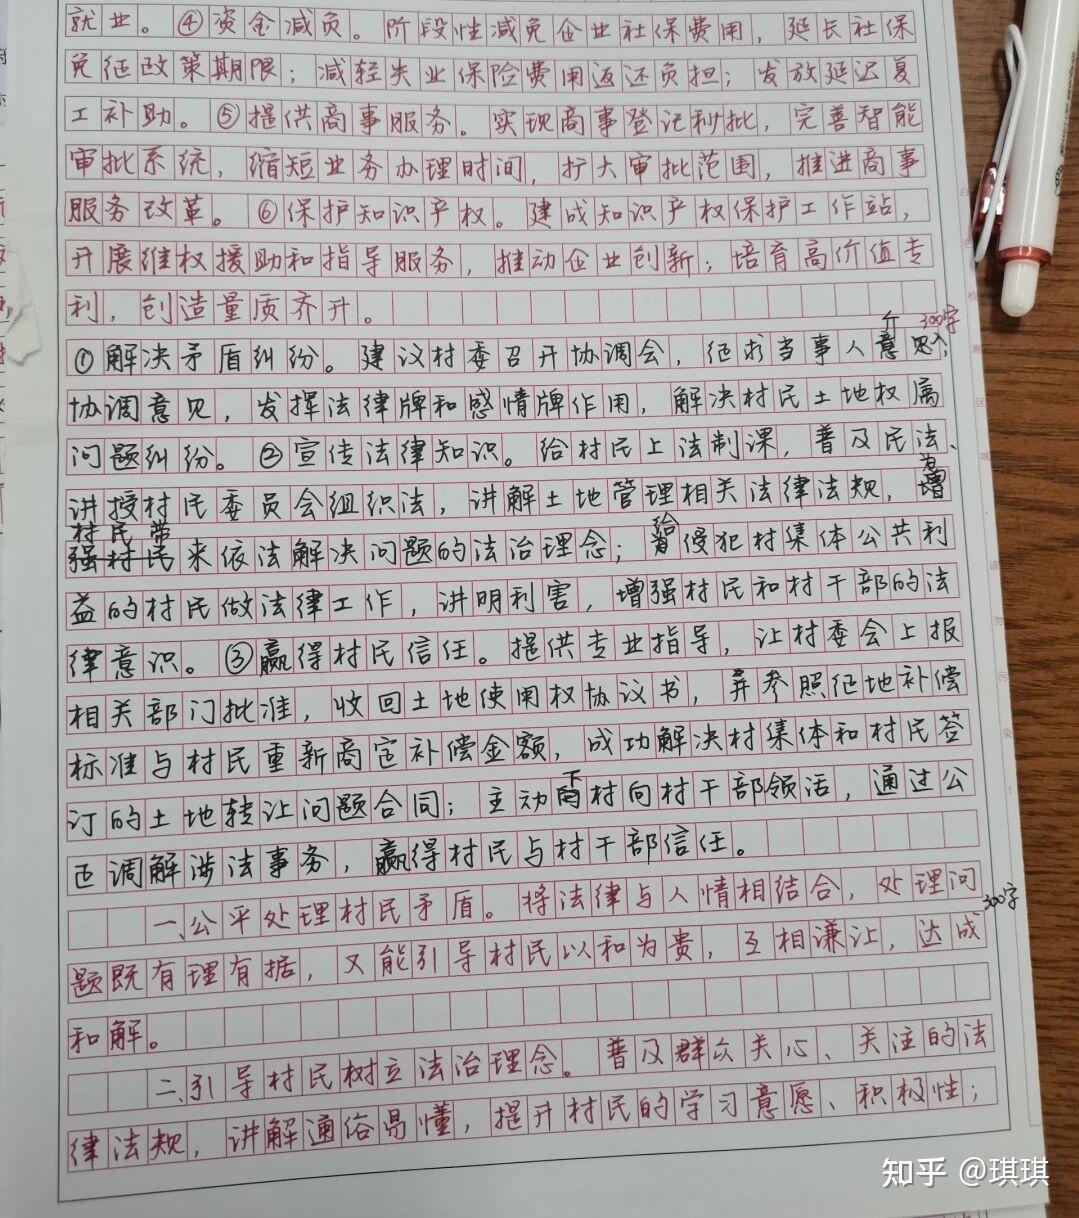 就业。④资金减负。阶段性减免企业社保费用，延长社保
免征政策期限；减轻失业保险费用返还负担；发放延迟复
工补助。⑤提供商事服务。实现商事登记秒批，完善智能
审批系统，缩短业务办理时间，扩大审批范围，推进商事
服务改革。⑥保护知识产权。建成知识产权保护工作站，
开展维权援助和指导服务，推动企业创新；培育高价值专
利，创造量质齐升。
300字
①解决矛盾纠纷。建议村委召开协调会，征求当事人意见，
协调意见，发挥法律牌和感情牌作用，解决村民土地权属
问题纠纷。②宣传法律知识。给村民上法制课，普及民法、
讲授村民委员会组织法，讲解土地管理相关法律法规，为增
村民带
强村民来依法解决问题的法治理念；给侵犯村集体公共利
益的村民做法律工作，讲明利害，增强村民和村干部的法
律意识。③赢得村民信任。提供专业指导，让村委会上报
相关部门批准，收回土地使用权协议书，并参照征地补偿
标准与村民重新商定补偿金额，成功解决村集体和村民签
订的土地转让问题合同；主动下村向村干部领活，通过公
正调解涉法事务，赢得村民与村干部信任。
300字
一、公平处理村民矛盾。将法律与人情相结合，处理问
题既有理有据，又能引导村民以和为贵，互相谦让，达成
和解。
二、引导村民树立法治理念。普及群众关心、关注的法
律法规，讲解通俗易懂，提升村民的学习意愿、积极性；
知乎 @琪琪